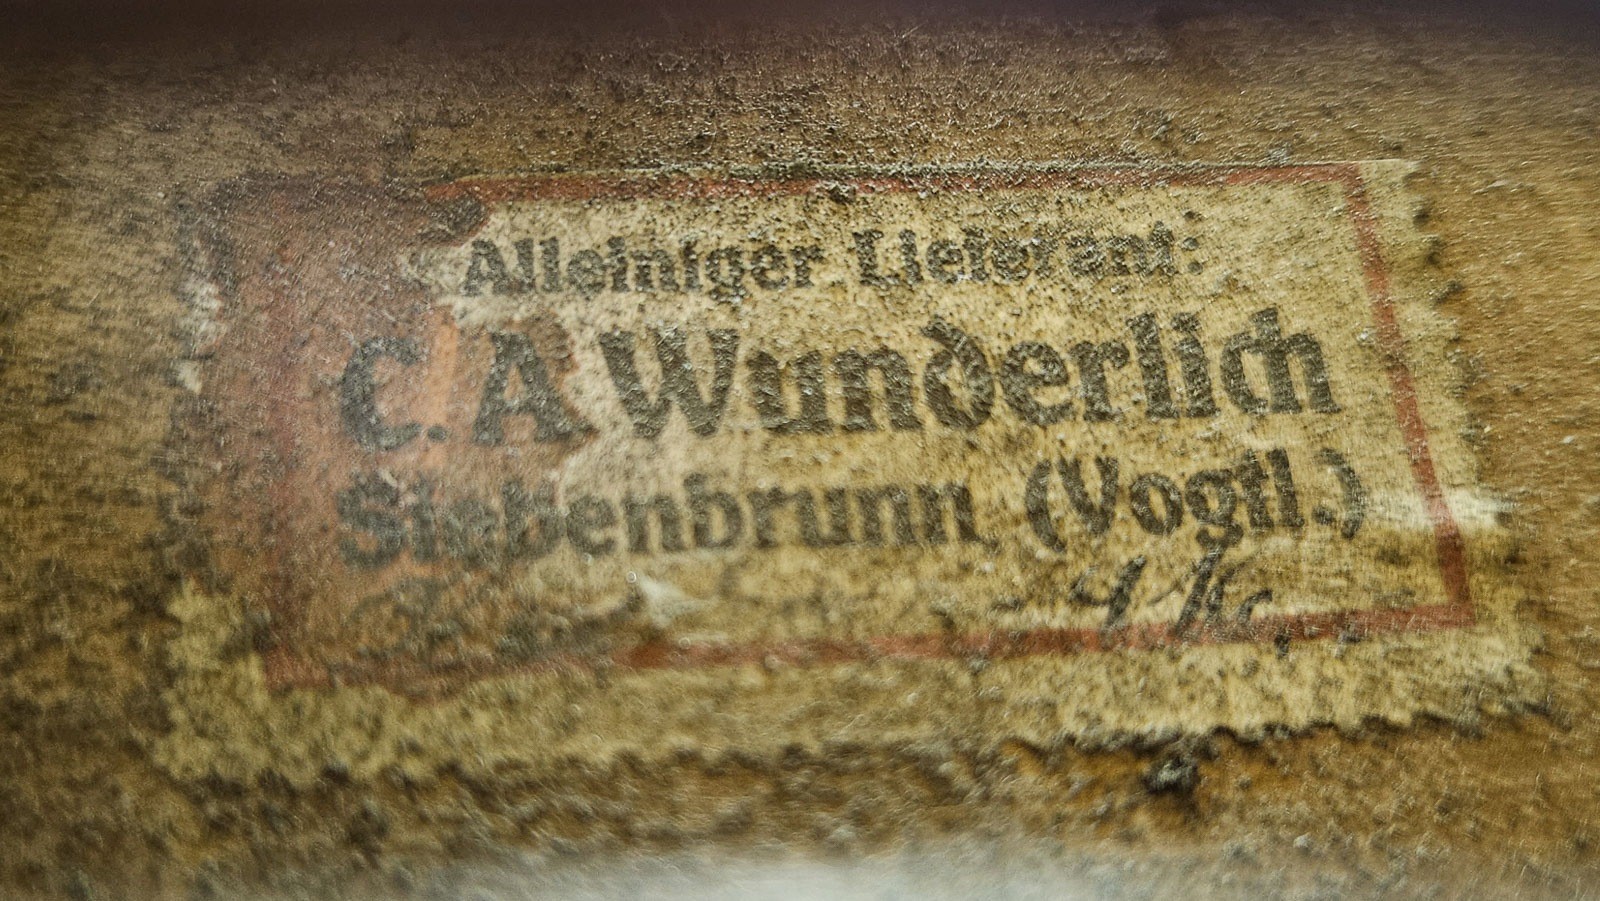 Alleiniger Lieferant:
C. A. Wunderlich
Siebenbrunn (Vogtl.)